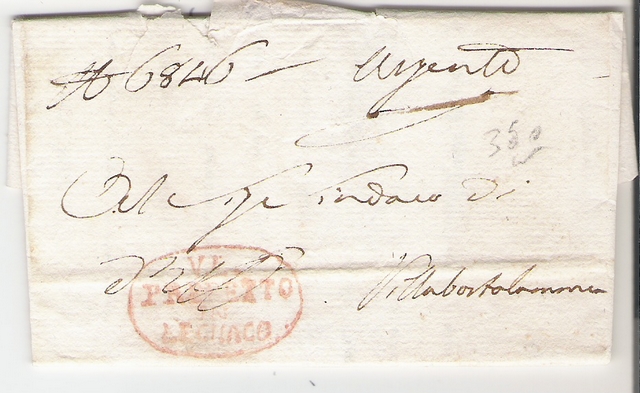 N 6846 – Urgente
350
Al Sig.e Sindaco di
Villabortolommea
VI
PREFETTO
DI
LEGNAGO